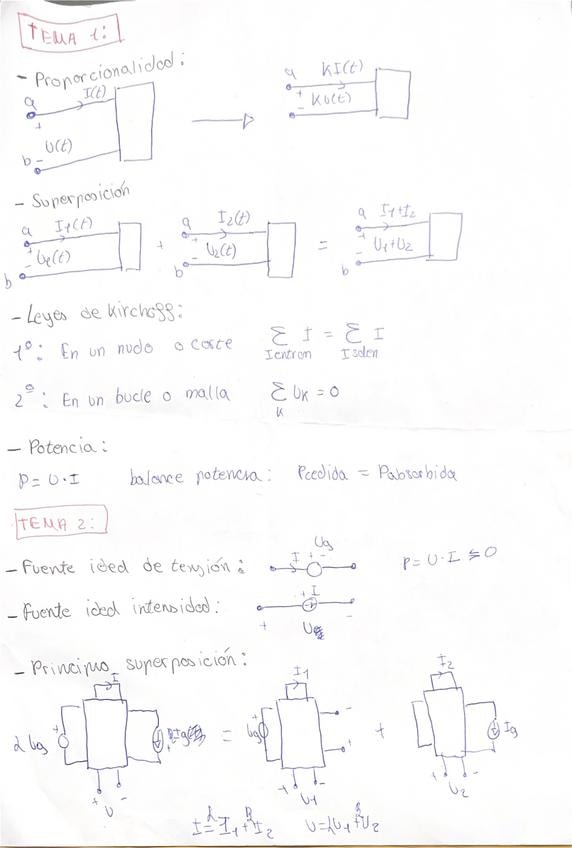 TEMA 1:
- Proporcionalidad:
a I(t) a KI(t)
+ + - KU(t)
b - U(t) b
- Superposición
a I1(t) a I2(t) a I1+I2
+ - U1(t) + + - U2(t) = + - U1+U2
b b b
- Leyes de Kirchoff:
1º: En un nudo o corte Σ I = Σ I
Ientran Isalen
2º: En un bucle o malla Σ UK = 0
K
- Potencia:
P = U·I balance potencia: Pcedida = Pabsorbida
TEMA 2:
- Fuente ideal de tensión: I + - Ug P = U·I ≶ 0
- Fuente ideal intensidad: + I
+ U -
- Principio superposición:
I I1 I2
α Ug + Ig = Ug + - + + Ig
+ - + - + -
U U1 U2
I = αI1 + βI2 U = αU1 + βU2